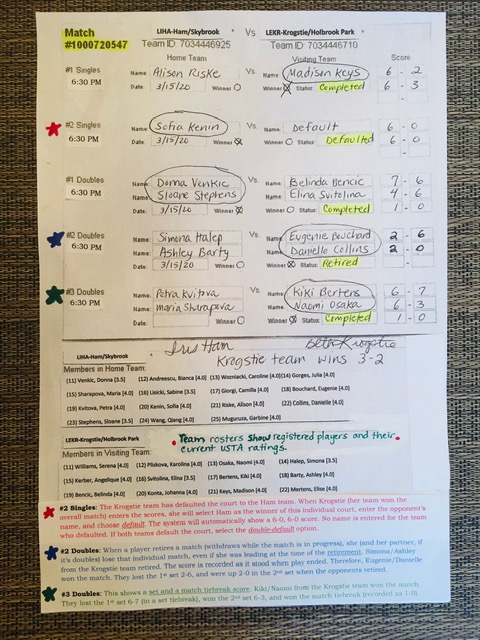 Match
#1000720547
LIHA-Ham/Skybrook Vs LEKR-Krogstie/Holbrook Park
Team ID: 7034446925 Team ID: 7034446710
Home Team Visiting Team Score
#1 Singles
6:30 PM
Name: Alison Riske Vs. Name: Madison Keys 6 - 2
Date: 3/15/20 Winner Winner Status: Completed 6 - 3
-
#2 Singles
6:30 PM
Name: Sofia Kenin Vs Name: Default 6 - 0
Date: 3/15/20 Winner Winner Status: Defaulted 6 - 0
-
#1 Doubles
6:30 PM
Name: Donna Venkic Vs. Name: Belinda Bencic 7 - 6
Name: Sloane Stephens Name: Elina Svitolina 4 - 6
Date: 3/15/20 Winner Winner Status: Completed 1 - 0
#2 Doubles
6:30 PM
Name: Simona Halep Vs. Name: Eugenie Bouchard 2 - 6
Name: Ashley Barty Name: Danielle Collins 2 0
Date: 3/15/20 Winner Winner Status: Retired
#3 Doubles
6:30 PM
Name: Petra Kvitova Vs. Name: Kiki Bertens 6 - 7
Name: Maria Sharapova Name: Naomi Osaka 6 - 3
Date: Winner Winner Status: Completed 1 - 0
LIHA-Ham/Skybrook
Iris Ham Beth Krogstie
Krogstie team wins 3-2
Members in Home Team:
(11) Venkic, Donna [3.5] (12) Andreescu, Bianca [4.0] (13) Wozniacki, Caroline [4.0] (14) Gorges, Julia [4.0]
(15) Sharapova, Maria [4.0] (16) Lisicki, Sabine [3.5] (17) Giorgi, Camilla [4.0] (18) Bouchard, Eugenie [4.0]
(19) Kvitova, Petra [4.0] (20) Kenin, Sofia [4.0] (21) Riske, Alison [4.0] (22) Collins, Danielle [4.0]
(23) Stephens, Sloane [3.5] (24) Wang, Qiang [4.0] (25) Muguruza, Garbine [4.0]
LEKR-Krogstie/Holbrook Park
Team rosters show registered players and their
current USTA ratings.
Members in Visiting Team:
(11) Williams, Serena [4.0] (12) Pliskova, Karolina [4.0] (13) Osaka, Naomi [4.0] (14) Halep, Simona [3.5]
(15) Kerber, Angelique [4.0] (16) Svitolina, Elina [3.5] (17) Bertens, Kiki [4.0] (18) Barty, Ashley [4.0]
(19) Bencic, Belinda [4.0] (20) Konta, Johanna [4.0] (21) Keys, Madison [4.0] (22) Mertens, Elise [4.0]
#2 Singles: The Krogstie team has defaulted the court to the Ham team. When Krogstie (her team won the
overall match) enters the scores, she will select Ham as the winner of this individual court, enter the opponent's
name, and choose default. The system will automatically show a 6-0, 6-0 score. No name is entered for the
team who defaulted. If both teams default the court, select the double-default option.
#2 Doubles: When a player retires a match (withdraws while the match is in progress), she (and her partner, if
it's doubles) lose that individual match, even if she was leading at the time of the retirement. Simona/Ashley
from the Krogstie team retired. The score is recorded as it stood when play ended. Therefore, Eugenie/Danielle
won the match. They lost the 1st set 2-6, and were up 2-0 in the 2nd set when the opponents retired.
#3 Doubles: This shows a set and a match tiebreak score. Kiki/Naomi from the Krogstie team won the match.
They lost the 1st set 6-7 (in a set tiebreak), won the 2nd set 6-3, and won the match tiebreak (recorded as 1-0).